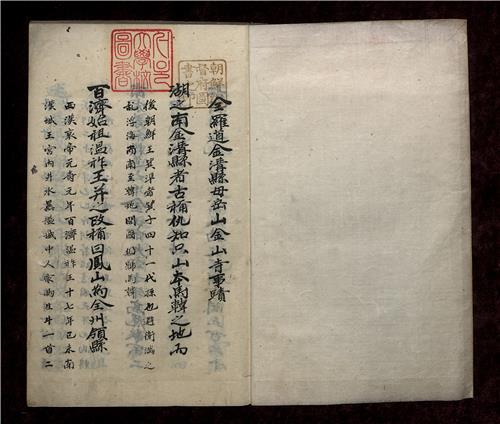 서울
大學校
圖書
朝鮮總
督府圖
書之印
全羅道金溝縣母岳山金山寺事蹟
湖之南金溝縣者古稱仇知只山本馬韓之地而
後朝鮮王箕準者箕子四十一代孫也避衛滿之
乱浮海而南至韓地開國仍號馬韓
百濟始祖溫祚王并之改稱曰鳳山為全州領縣
西漢哀帝元寿元年百濟溫祚王十七年己未南
漢城王宮內井水暴溢城中人家馬生牛一首二